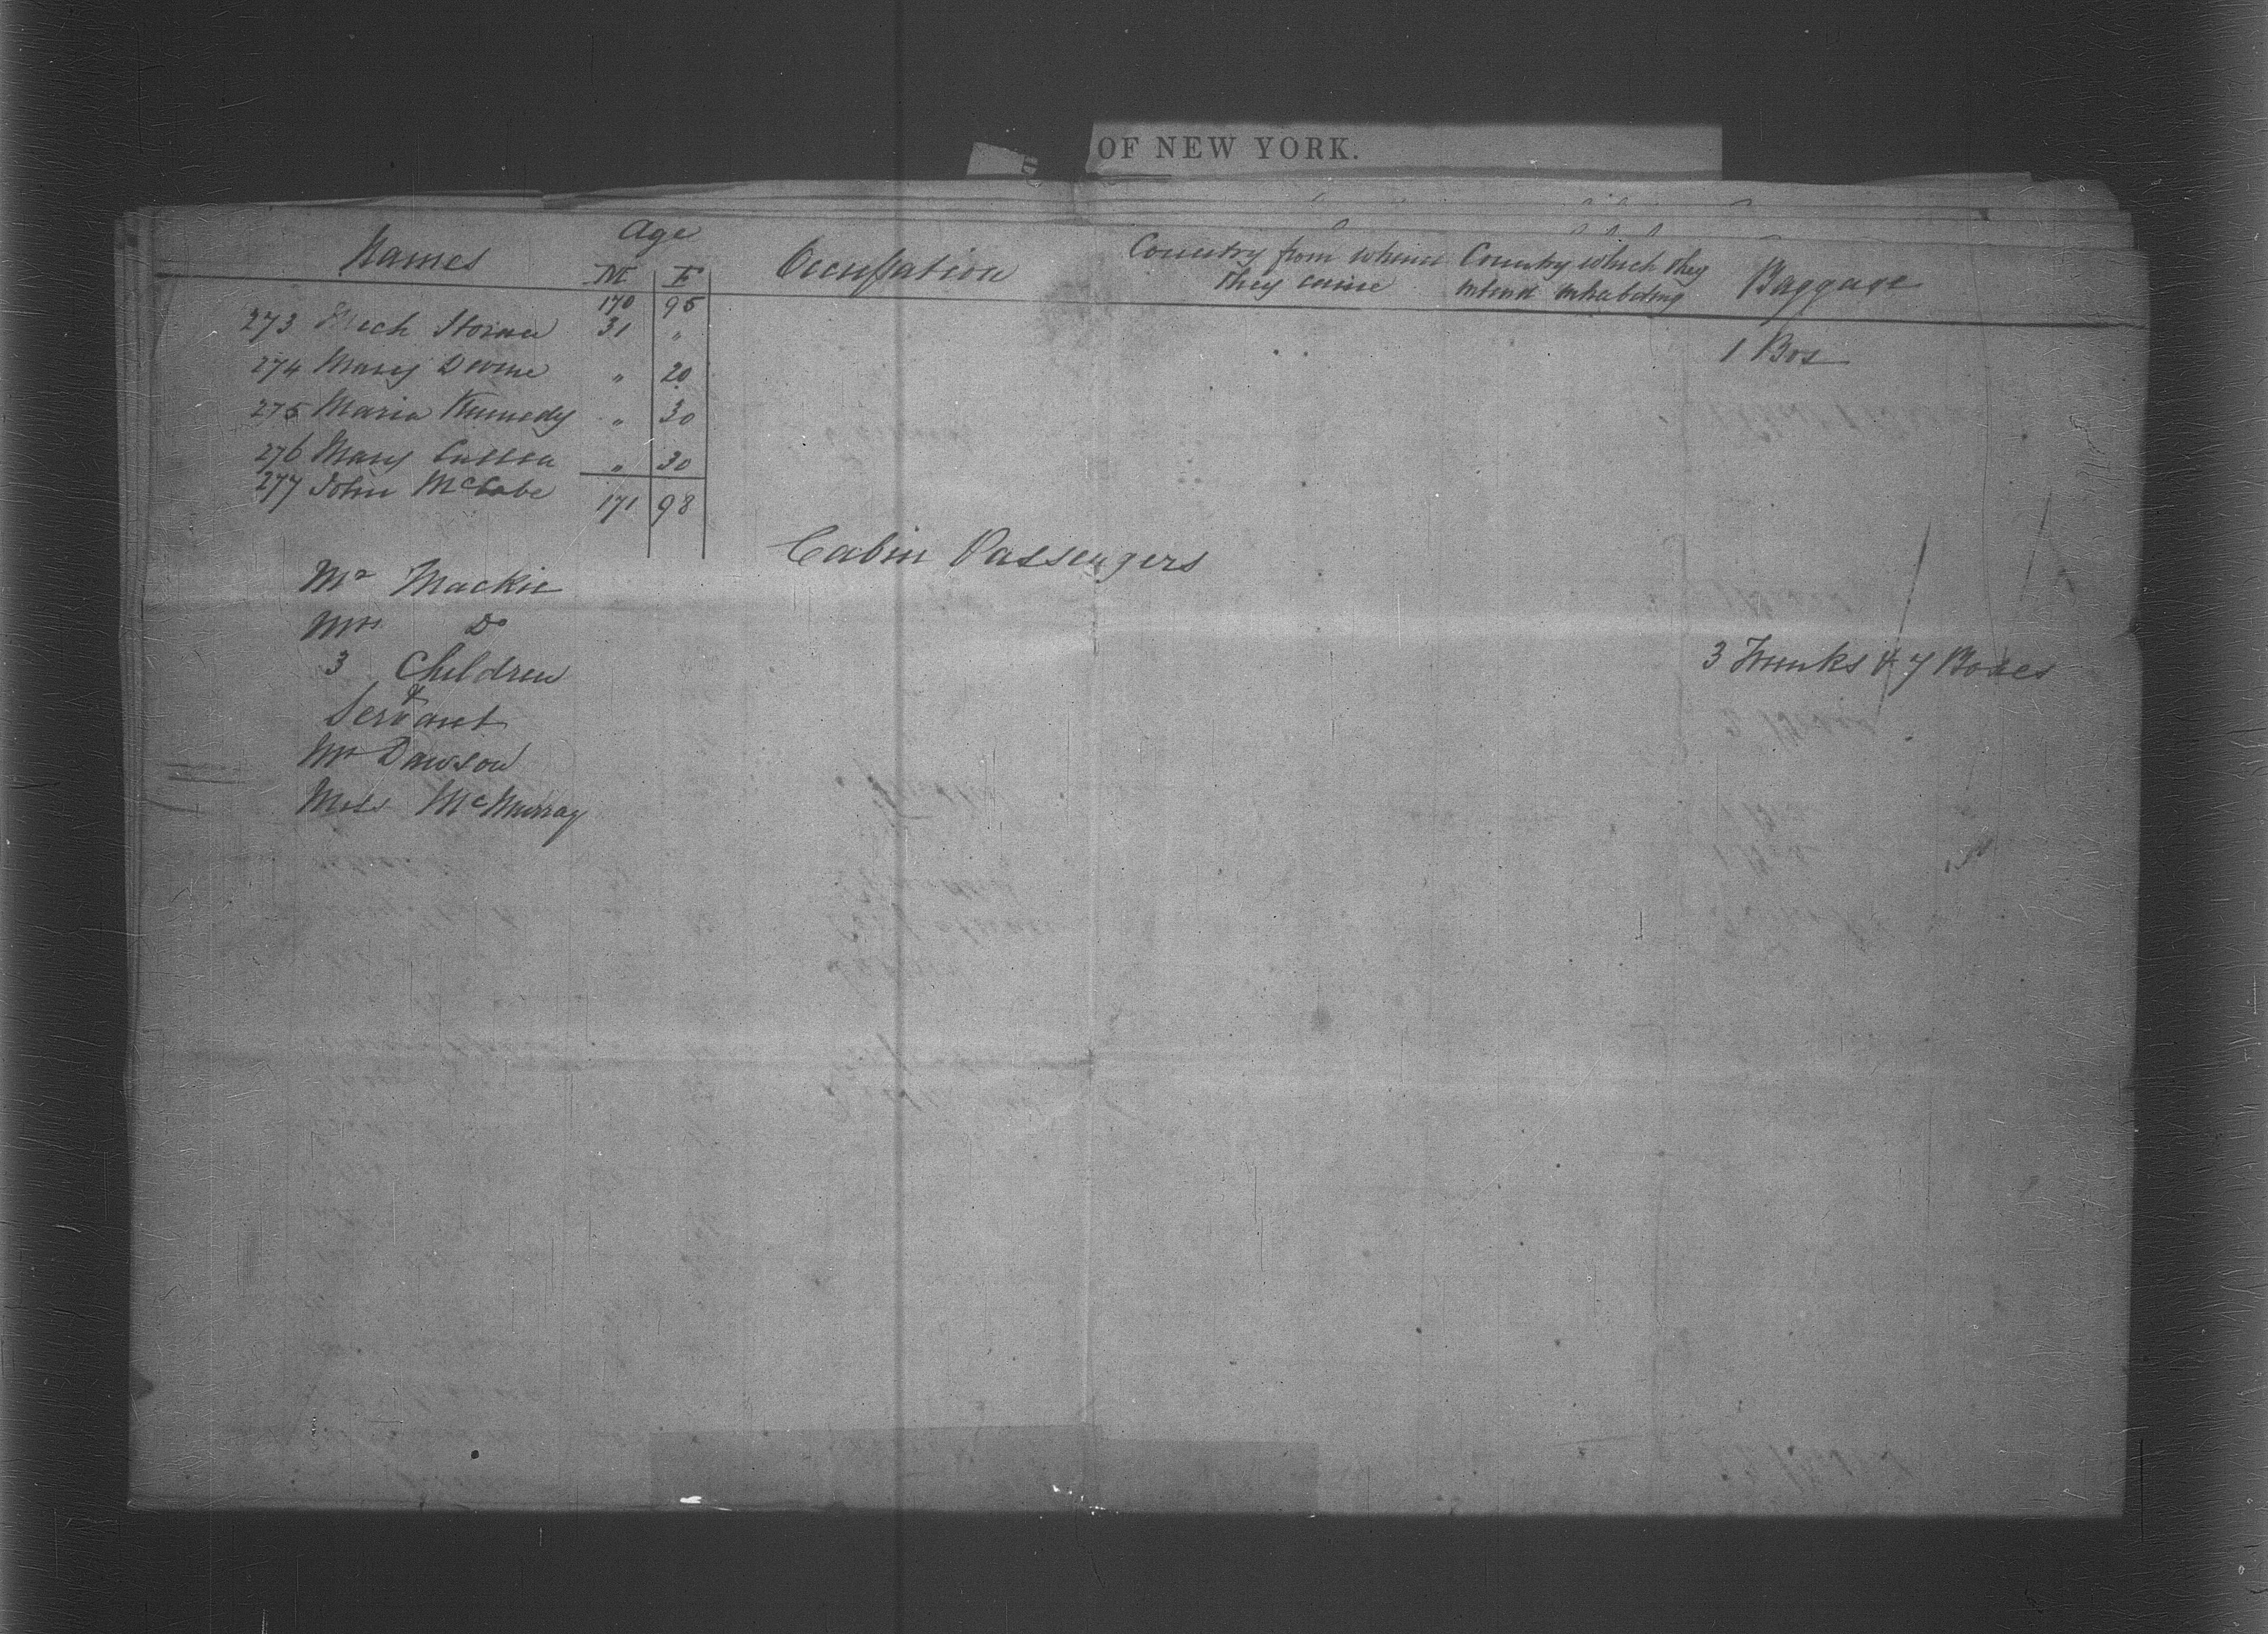 OF NEW YORK.
Names Age Occupation Country from whence they came Country which they intend inhabiting Baggage
M F
170 95
273 Mich 31 " 1 Box
274 Mary Devine " 20
275 Maria Kennedy " 30
276 Mary " 30
277 John McCabe
171 98
Cabin Passengers
Mr Mackie
Mrs Do
3 Children 3 Trunks & 7 Boxes
&
Servant
Mr Dawson
Miss McMurray